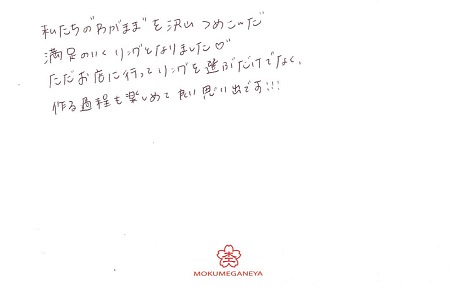 私たちの"わがまま"を沢山つめこんだ
満足のいくリングとなりました♡
ただお店に行ってリングを選ぶだけでなく、
作る過程も楽しめて良い思い出です!!!
MOKUMEGANEYA